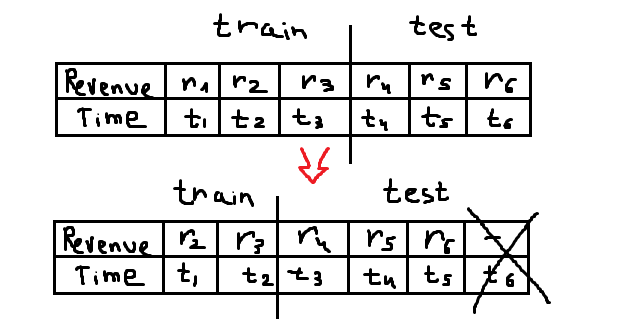 train test
Revenue r1 r2 r3 r4 r5 r6
Time t1 t2 t3 t4 t5 t6
train test
Revenue r2 r3 r4 r5 r6 -
Time t1 t2 t3 t4 t5 t6